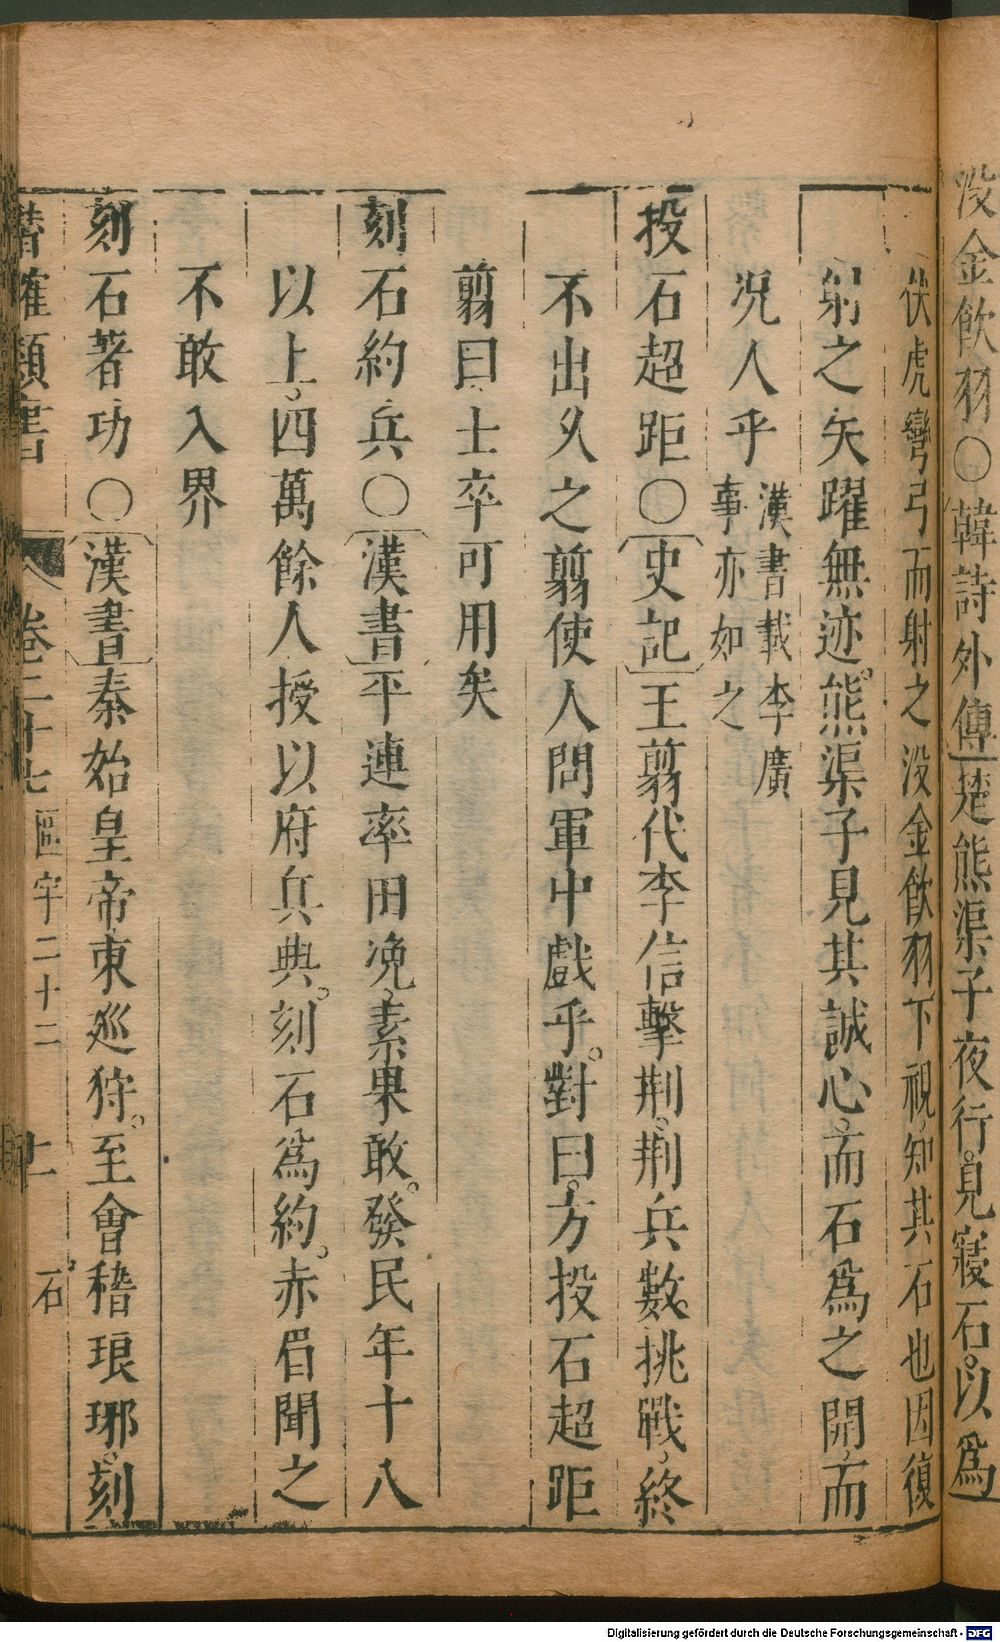 没金飲羽○韓詩外傳楚熊渠子夜行見寢石以爲
伏虎彎弓而射之没金飲羽下視知其石也因復
射之矢躍無迹熊渠子見其誠心而石爲之開而
況人乎漢書載李廣
事亦如之
投石超距○史記王翦代李信擊荆荆兵數挑戰終
不出久之翦使人問軍中戲乎對曰方投石超距
翦曰士卒可用矣
刻石約兵○漢書平連率田况素果敢發民年十八
以上四萬餘人授以府兵與刻石爲約赤眉聞之
不敢入界
刻石著功○漢書秦始皇帝東巡狩至會稽琅琊刻
潛確類書 卷二十七 區宇二十二 石
Digitalisierung gefördert durch die Deutsche Forschungsgemeinschaft - DFG